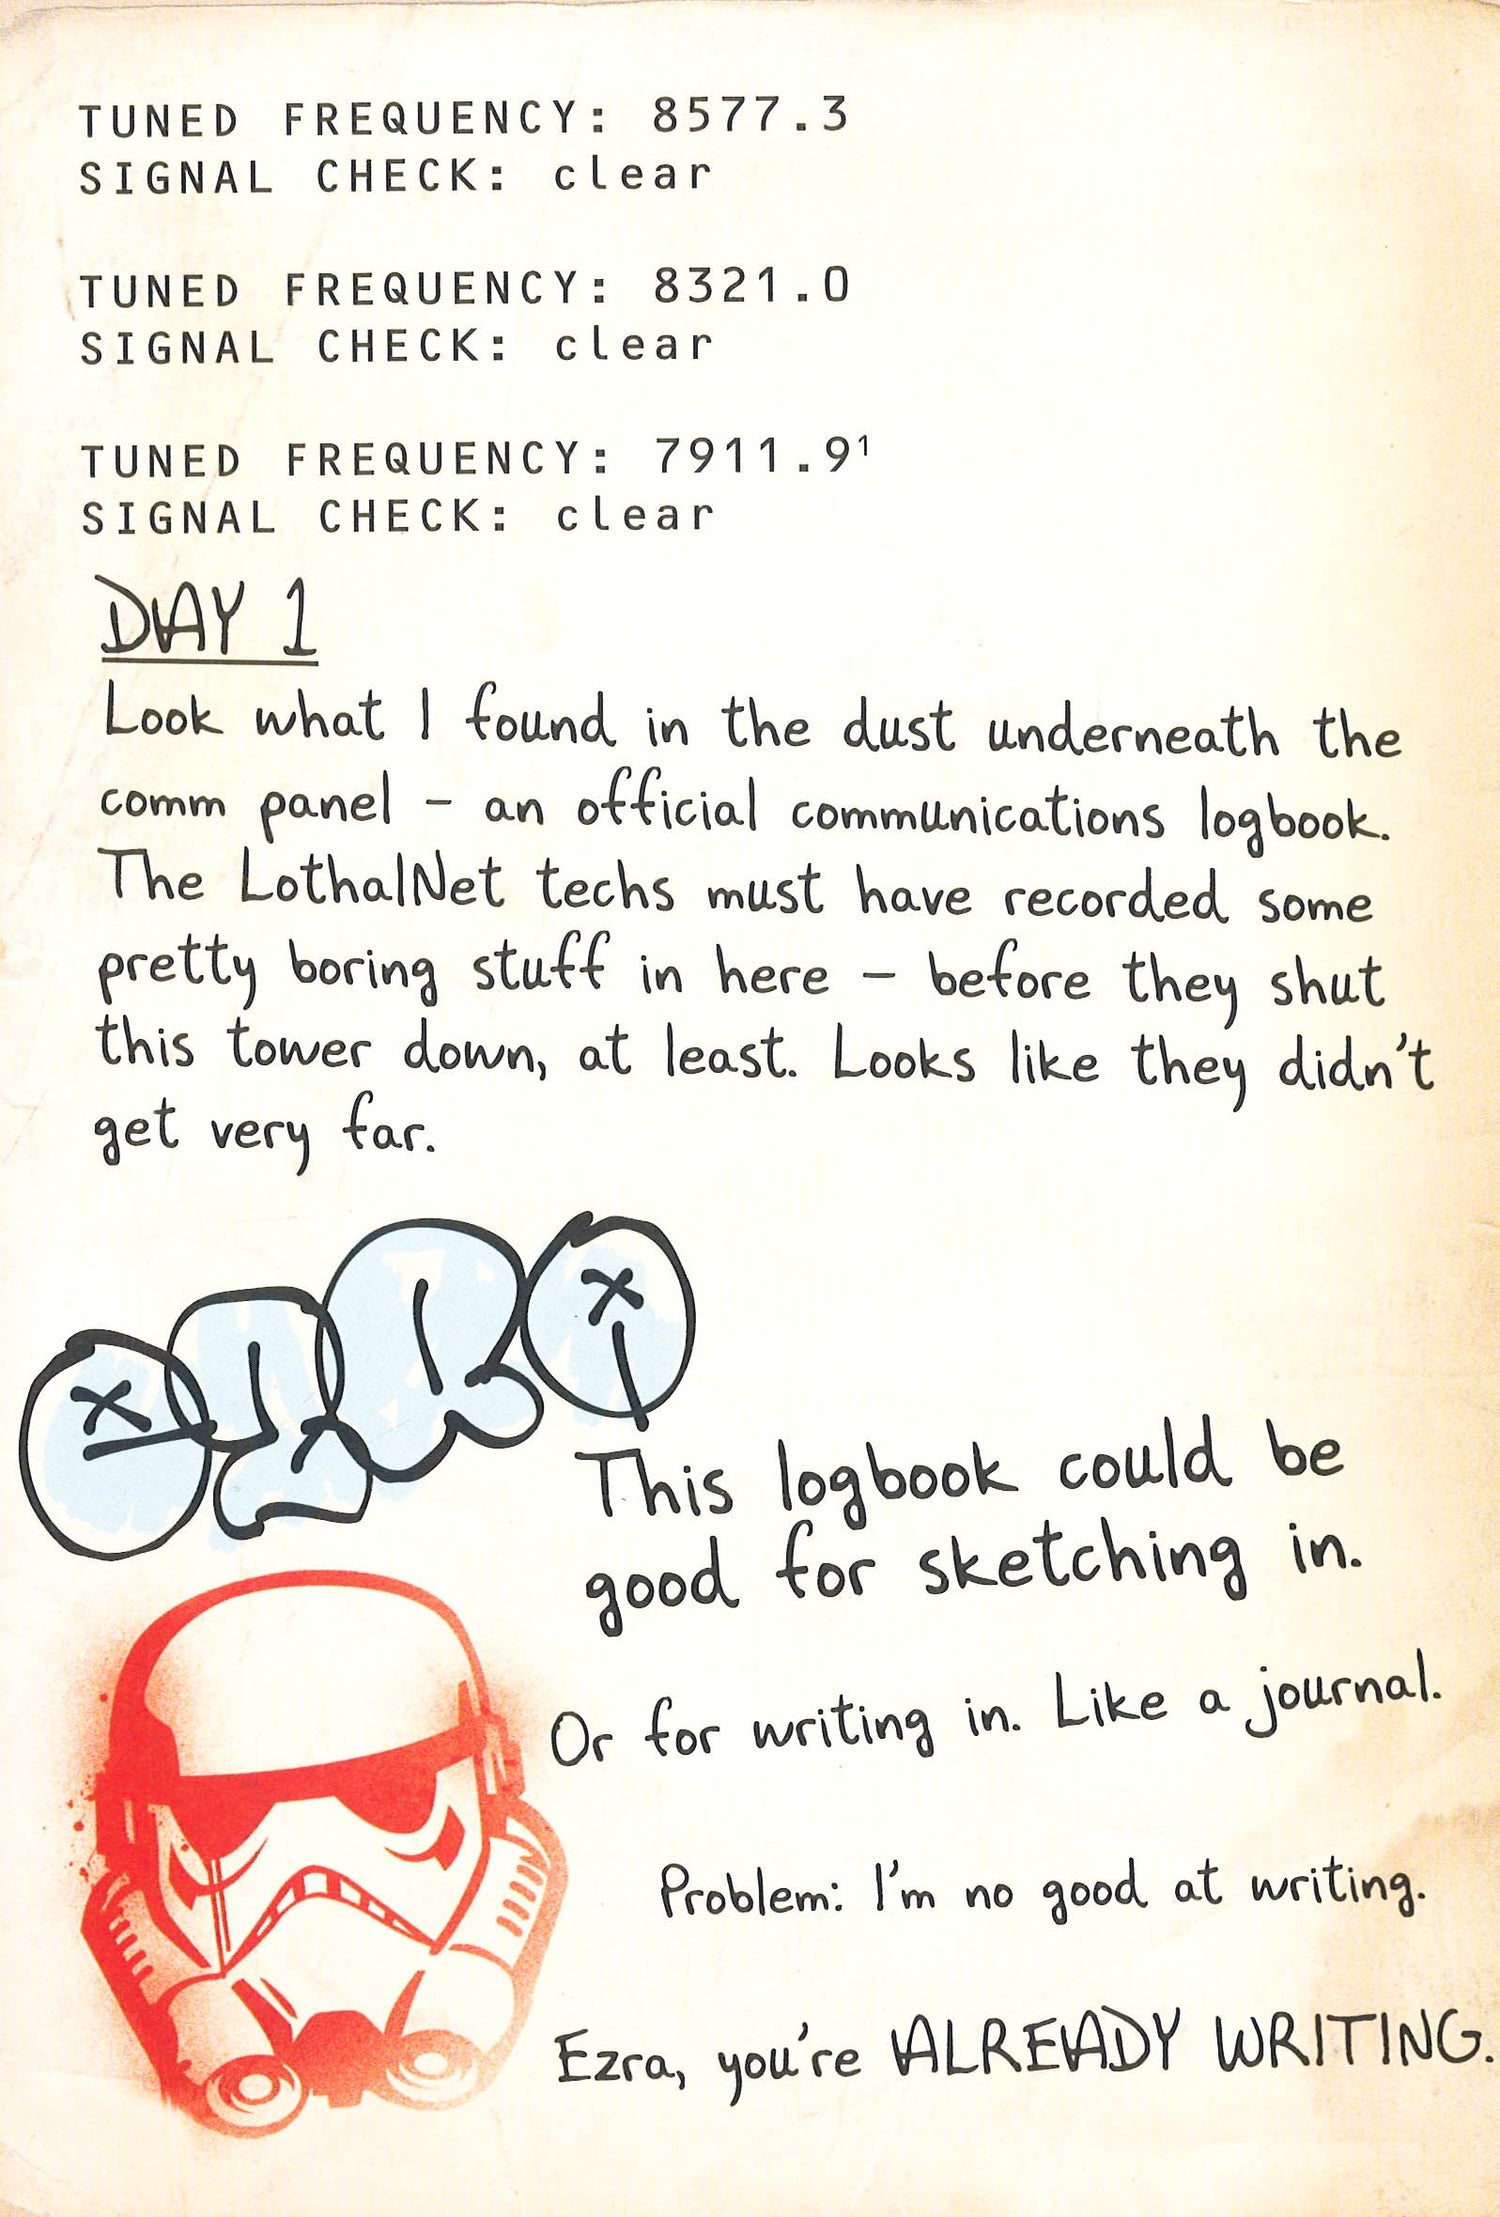 TUNED FREQUENCY: 8577.3
SIGNAL CHECK: clear
TUNED FREQUENCY: 8321.0
SIGNAL CHECK: clear
TUNED FREQUENCY: 7911.9¹
SIGNAL CHECK: clear
DAY 1
Look what I found in the dust underneath the
comm panel – an official communications logbook.
The LothalNet techs must have recorded some
pretty boring stuff in here – before they shut
this tower down, at least. Looks like they didn't
get very far.
This logbook could be
good for sketching in.
Or for writing in. Like a journal.
Problem: I'm no good at writing.
Ezra, you're ALREADY WRITING.